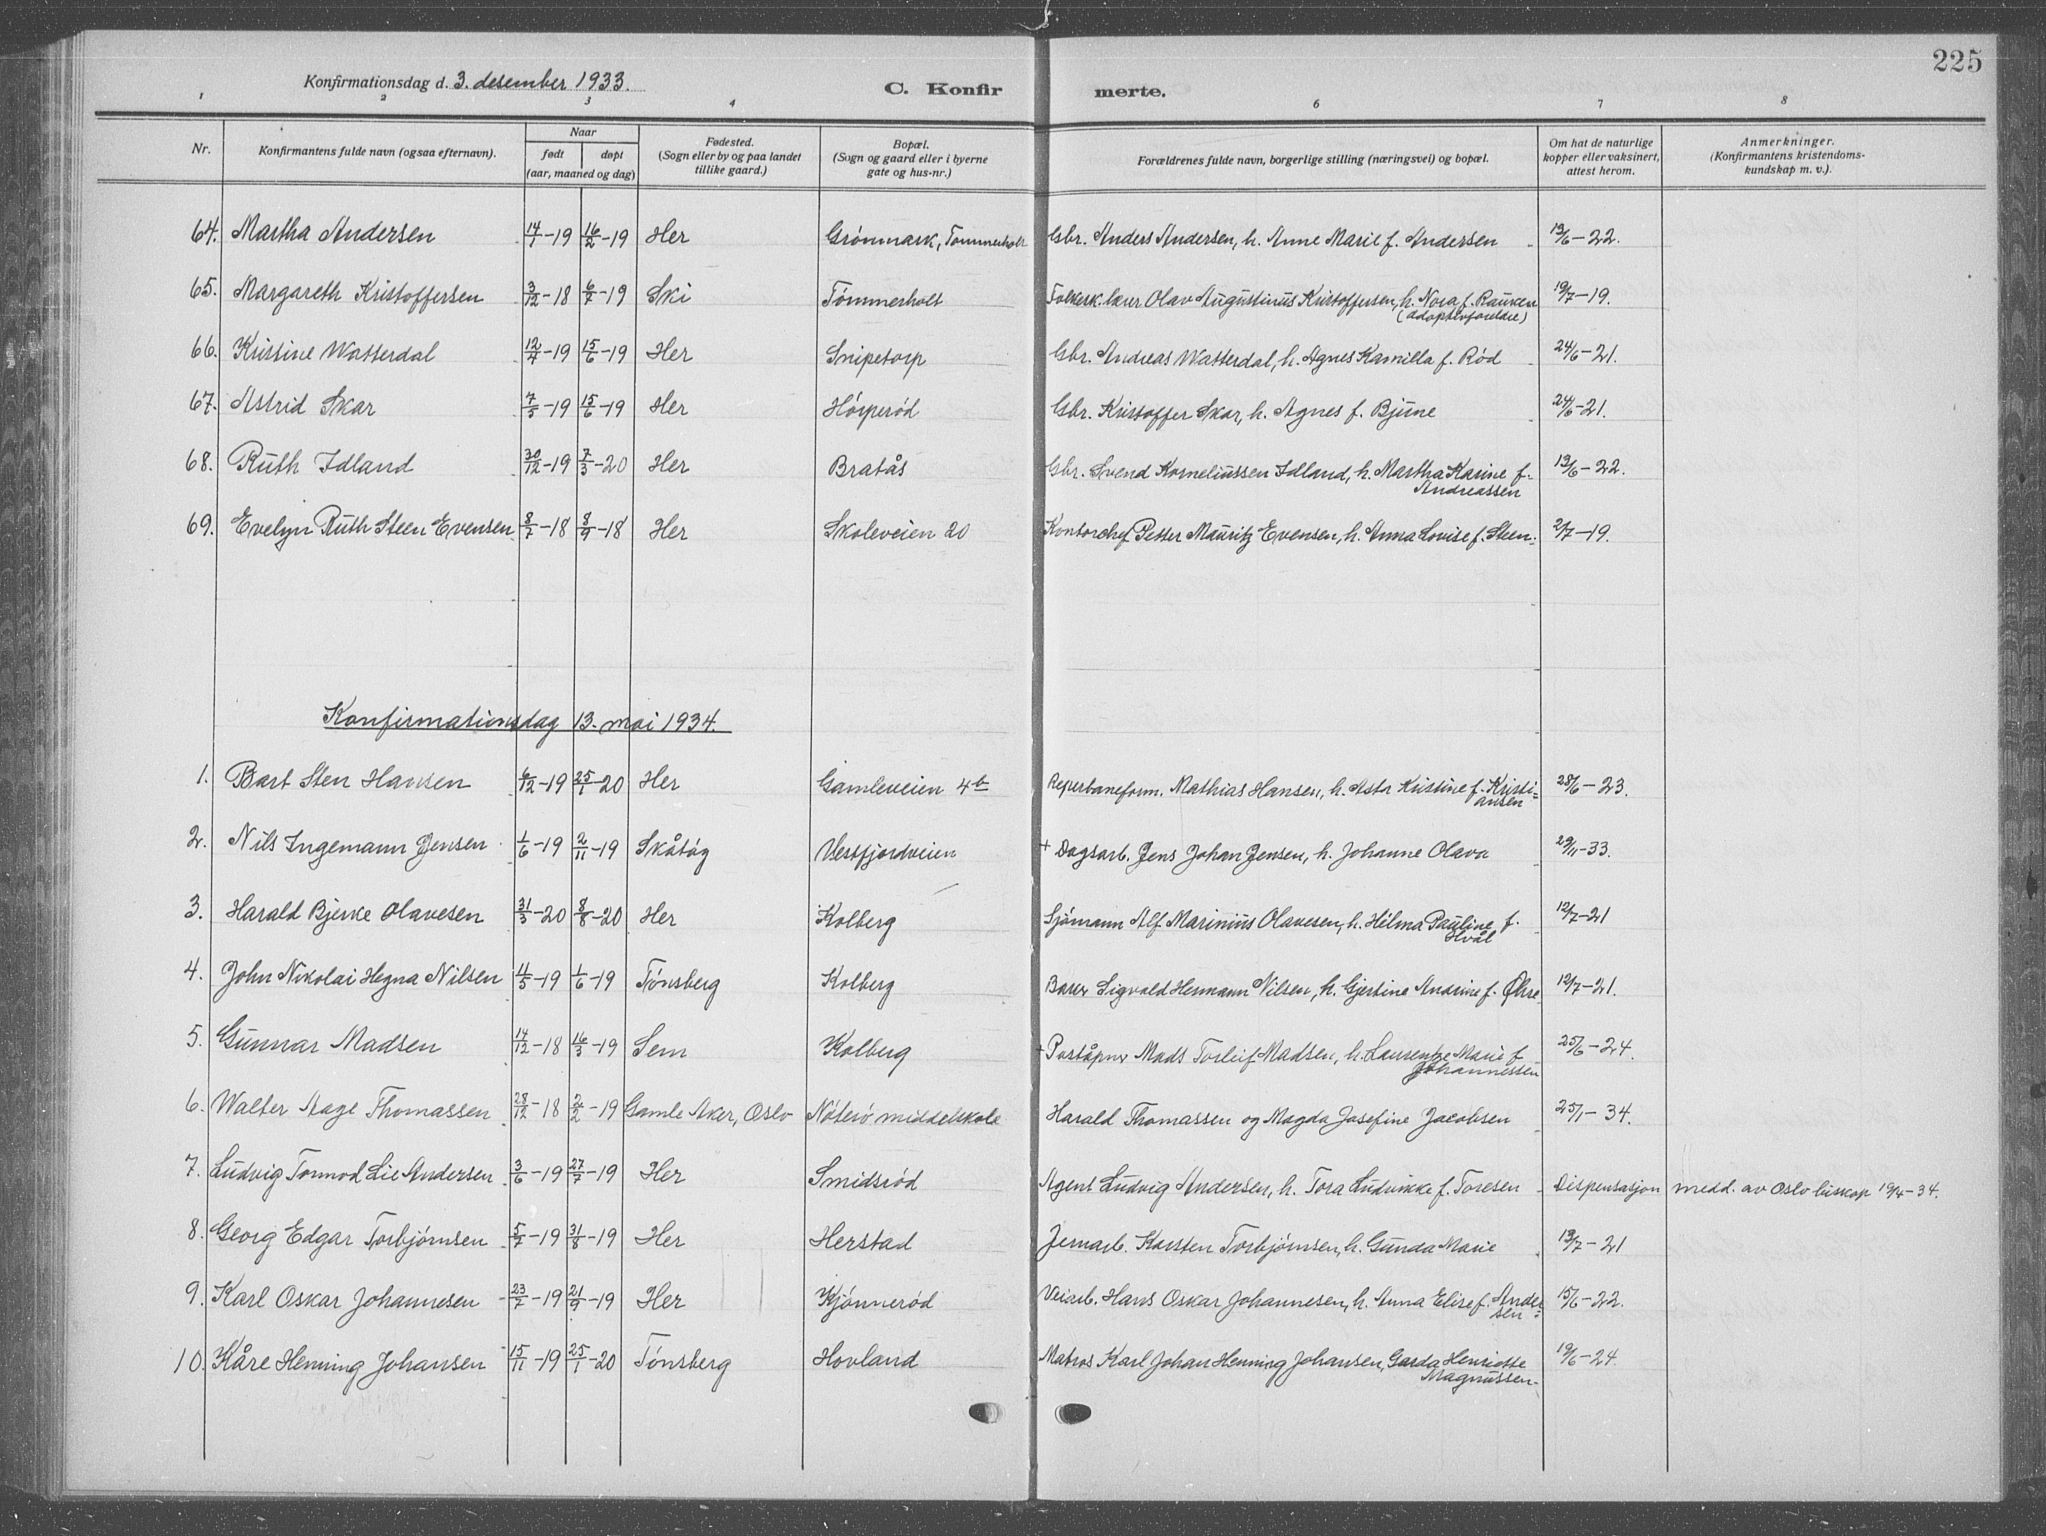 225
Konfirmationsdag d. 3. desember 1933.
C. Konfir merte.
1 2 3 4 6 7 8
Nr.
Konfirmantens fulde navn (ogsaa efternavn).
Naar
født døpt
(aar, maaned og dag)
Fødested.
(Sogn eller by og paa landet
tillike gaard.)
Bopæl.
(Sogn og gaard eller i byerne
gate og hus-nr.)
Forældrenes fulde navn, borgerlige stilling (næringsvei) og bopæl.
Om hat de naturlige
kopper eller vaksinert,
attest herom.
Anmerkninger.
(Konfirmantens kristendoms-
kundskap m. v.).
64. Martha Andersen 14/1-19 16/2-19 Her Grønmark, Tømmerholt Gbr. Anders Andersen, h. Anne Marie f. Andersen 13/6-22.
65. Margareth Kristoffersen 3/12-18 6/7-19 Ski Tømmerholt Folkesk. lærer Olav Augustinus Kristoffersen, h. Nora f. Rauken 19/7-19.
(adoptivforeldre)
66. Kristine Watterdal 12/4-19 15/6-19 Her Snipetorp Gbr. Andreas Watterdal, h. Agnes Kamilla f. Rød 24/6-21.
67. Astrid Skar 7/5-19 15/6-19 Her Hørperød Gbr. Kristoffer Skar, h. Agnes f. Bjune 24/6-21.
68. Ruth Idland 30/12-19 7/3-20 Her Bratås Gbr. Svend Korneliussen Idland, h. Martha Karine f. 13/6-22.
Andreassen
69. Evelyn Ruth Steen Evensen 8/7-18 8/9-18 Her Skoleveien 20 Kontorchef Petter Mauritz Evensen, h. Anna Lovise f. Steen. 2/7-19.
Konfirmationsdag 13. mai 1934.
1. Bart Sten Hansen 6/12-19 25/1-20 Her Gamleveien 4b Reperbaneform. Mathias Hansen, h. Asta Kristine f. Kristi= 28/6-23.
ansen
2. Nils Ingemann Jensen 1/6-19 2/11-19 Skåtøy Vestfjordveien + Dagsarb. Jens Johan Jensen, h. Johanne Olava 29/11-33.
3. Harald Bjerke Olavesen 31/3-20 8/8-20 Her Kolberg Sjømann Alf Marinius Olavesen, h. Helma Pauline f. 12/7-21
Hvål
4. John Nikolai Hegna Nilsen 11/5-19 1/6-19 Tønsberg Kolberg Baker Sigvald Hermann Nilsen, h. Gjertine Andrine f. Øhre 12/7-21.
5. Gunnar Madsen 14/12-18 16/3-19 Sem Kolberg + Poståpner Mads Torleif Madsen, h. Laurentze Marie f 25/6-24.
Johannessen
6. Walter Aage Thomassen 28/12-18 2/2-19 Gamle Aker, Oslo Nøterø middelskole Harald Thomassen og Magda Josefine Jacobsen 25/1-34.
7. Ludvig Tormod Lie Andersen 3/6-19 27/7-19 Her Smidsrød Agent Ludvig Andersen, h. Tora Ludvikke f. Toresen Dispensasjon medd. av Oslo biskop 19/4-34.
8. Georg Edgar Torbjørnsen 5/7-19 31/8-19 Her Herstad Jernarb. Karsten Torbjørnsen, h. Gunda Marie 13/7-21
9. Karl Oskar Johannesen 23/7-19 21/9-19 Her Kjønnerød Veiarb. Hans Oskar Johannesen, h. Anna Elise f. Ander= 15/6-22.
sen
10. Kåre Henning Johansen 15/11-19 25/1-20 Tønsberg Hovland Matros Karl Johan Henning Johansen, Gerda Henriette 19/6-24.
Magnussen